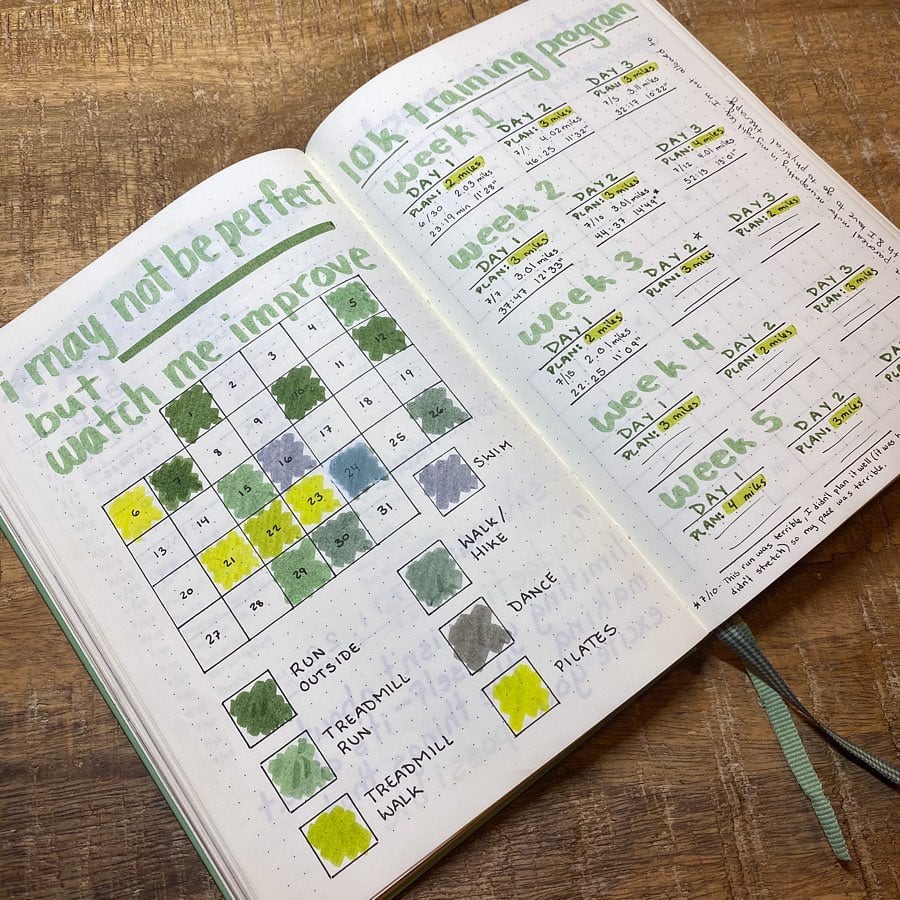 i may not be perfect
but
watch me improve
1 2 3 4 5
6 7 8 9 10 11 12
13 14 15 16 17 18 19
20 21 22 23 24 25 26
27 28 29 30 31
RUN OUTSIDE
TREADMILL RUN
TREADMILL WALK
SWIM
WALK/ HIKE
DANCE
PILATES
10k training program
week 1
DAY 1
PLAN: 2 miles
6/30 2.03 miles
23:19 min 11'28"
DAY 2
PLAN: 3 miles
7/1 4.02 miles
46:25 11'32"
DAY 3
PLAN: 3 miles
7/5 3.11 miles
32:17 10'22"
week 2
DAY 1
PLAN: 3 miles
7/7 3.01 miles
37:47 12'33"
DAY 2
PLAN: 3 miles
7/10 3.01 miles *
44:37 14'49"
DAY 3
PLAN: 4 miles
7/12 4.01 miles
52:13 13'01"
week 3
DAY 1
PLAN: 2 miles
7/15 2.01 miles
22:25 11'09"
DAY 2 *
PLAN: 3 miles
DAY 3
PLAN: 2 miles
week 4
DAY 1
PLAN: 3 miles
DAY 2
PLAN: 2 miles
DAY 3
PLAN: 3 miles
week 5
DAY 1
PLAN: 4 miles
DAY 2
PLAN: 3 miles
*7/10 - This run was terrible, I didn't plan it well (it was
didn't stretch) so my pace was terrible.
& I have to go to physical therapy
in my right leg. I'm not allowed to